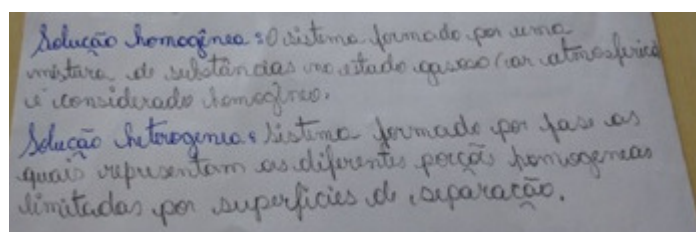 Solução homogênea: O sistema formado por uma
mistura de substâncias no estado gasoso (ar atmosférico
é considerado homogêneo.
Solução heterogenea: Sistema formado por fase as
quais representam as diferentes porções homogeneas
limitadas por superfícies de separação.